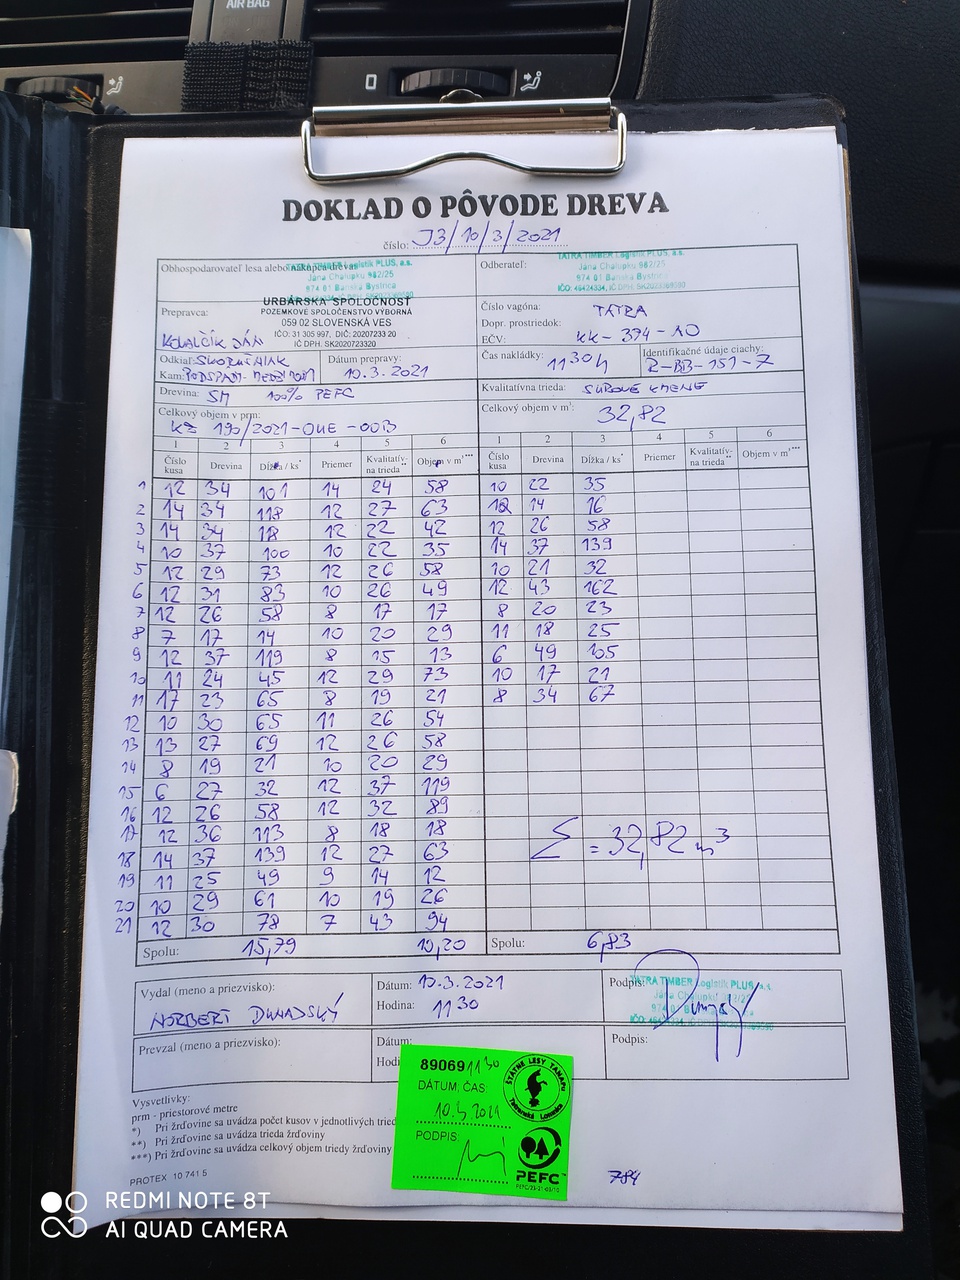 AIR BAG
DOKLAD O PÔVODE DREVA
číslo: J3/10/3/2021
Obhospodarovateľ lesa alebo nákupca dreva:
TATRA TIMBER Logistik PLUS, a.s.
Jána Chalupku 982/25
974 01 Banská Bystrica
URBÁRSKA SPOLOČNOSŤ
POZEMKOVÉ SPOLOČENSTVO VÝBORNÁ
059 02 SLOVENSKÁ VES
IČO: 31 305 997, DIČ: 20207233 20
IČ DPH: SK2020723320
Odberateľ:
TATRA TIMBER Logistik PLUS, a.s.
Jána Chalupku 982/25
974 01 Banská Bystrica
Prepravca:
KOVALČÍK JÁN
Číslo vagóna: TATRA
Dopr. prostriedok:
EČV: KK-394-AO
Odkiaľ:
Kam:
Dátum prepravy:
10.3.2021
Čas nakládky: 11 30 h
Identifikačné údaje ciachy:
R-BB-151-7
Drevina: SM 100% PEFC
Kvalitatívna trieda: SUROVÉ KMENE
Celkový objem v prm:
KZ 190/2021-OUE-OOB
Celkový objem v m³: 32,82
1 2 3 4 5 6 1 2 3 4 5 6
Číslo kusa Drevina Dĺžka / ks* Priemer Kvalitatívna trieda** Objem v m³*** Číslo kusa Drevina Dĺžka / ks* Priemer Kvalitatívna trieda** Objem v m³***
1 12 34 101 14 24 58 10 22 35
2 14 34 118 12 27 63 12 14 16
3 14 34 18 12 22 42 12 26 58
4 10 37 100 10 22 35 14 37 139
5 12 29 73 12 26 58 10 21 32
6 12 31 83 10 26 49 12 43 162
7 12 26 58 8 17 17 8 20 23
8 7 17 14 10 20 29 11 18 25
9 12 37 119 8 15 13 6 49 105
10 11 24 45 12 29 73 10 17 21
11 17 23 65 8 19 21 8 34 67
12 10 30 65 11 26 54
13 13 27 69 12 26 58
14 8 19 21 10 20 29
15 6 27 32 12 37 119
16 12 26 58 12 32 89
17 12 36 113 8 18 18
18 14 37 139 12 27 63
19 11 25 49 9 14 12
20 10 29 61 10 19 26
21 12 30 78 7 43 94
Σ = 32,82 m³
Spolu: 15,79 10,20 Spolu: 6,83
Vydal (meno a priezvisko):
NORBERT DUNAJSKÝ
Dátum: 10.3.2021
Hodina: 11 30
Podpis:
TATRA TIMBER Logistik PLUS, a.s.
Prevzal (meno a priezvisko):
Dátum:
Podpis:
89069 11 30
DÁTUM, ČAS:
10.3.2021
PODPIS:
ŠTÁTNE LESY TANAPU
Tatranská Lomnica
PEFC
Vysvetlivky:
prm - priestorové metre
*) Pri žrďovine sa uvádza počet kusov v jednotlivých tried
**) Pri žrďovine sa uvádza trieda žrďoviny
***) Pri žrďovine sa uvádza celkový objem triedy žrďoviny
PROTEX 10 741 5
784
REDMI NOTE 8T
AI QUAD CAMERA